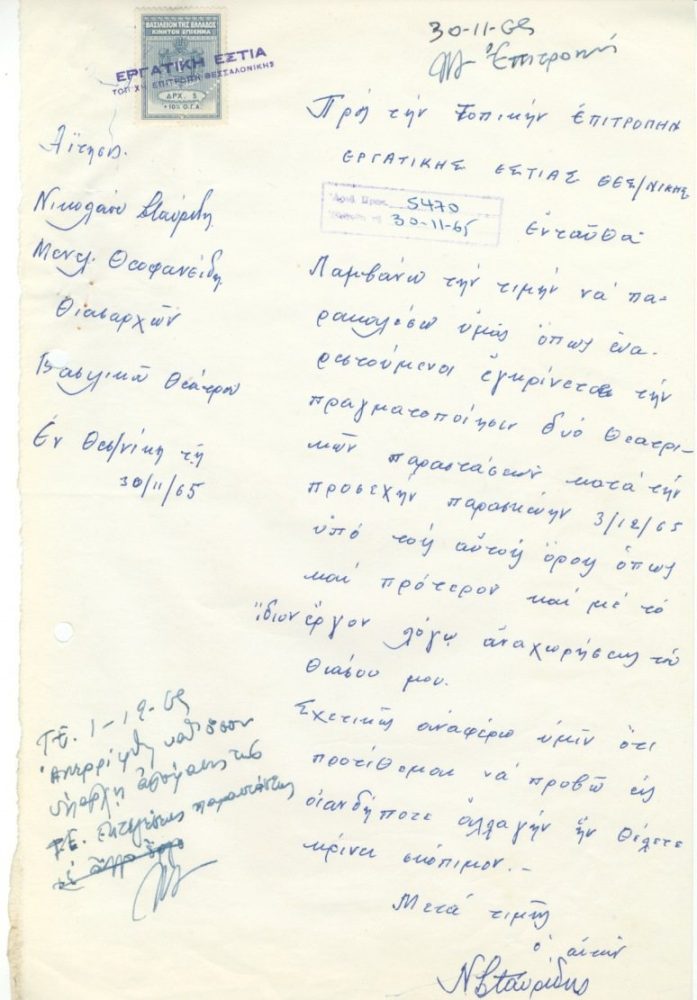 30-11-65
Ἐπιτροπή
ΒΑΣΙΛΕΙΟΝ ΤΗΣ ΕΛΛΑΔΟΣ
ΚΙΝΗΤΟΝ ΕΠΙΣΗΜΑ
ΔΡΧ. 5
+10% Ο.Γ.Α.
ΕΡΓΑΤΙΚΗ ΕΣΤΙΑ
ΤΟΠΙΚΗ ΕΠΙΤΡΟΠΗ ΘΕΣΣΑΛΟΝΙΚΗΣ
Αἴτησις
Νικολάου Σταυρίδη
Μενελ. Θεοφανείδη
Θιασαρχῶν
Βασιλικοῦ Θεάτρου
Ἐν Θεσ/νίκη τῇ
30/11/65
Πρός τήν Τοπικήν ΕΠΙΤΡΟΠΗΝ
ΕΡΓΑΤΙΚΗΣ ΕΣΤΙΑΣ ΘΕΣ/ΝΙΚΗΣ
Ἀριθ. Πρωτ. 5470
30-11-65
Ἐνταῦθα
Λαμβάνω τήν τιμήν νά πα-
ρακαλέσω ὑμᾶς ὅπως εὐα-
ρεστούμενοι ἐγκρίνετε τήν
πραγματοποίησιν δύο θεατρι-
κῶν παραστάσεων κατά τήν
προσεχῆν παρασκευήν 3/12/65
ὑπό τούς αὐτούς ὅρους ὅπως
καί πρότερον καί μέ τό
ἴδιον ἔργον λόγῳ ἀναχωρήσεως τοῦ
θιάσου μου.
Σχετικῶς ἀναφέρω ὑμῖν ὅτι
προτίθεμαι νά προβῶ εἰς
οἱανδήποτε ἀλλαγήν ἥν θέλετε
κρίνει σκόπιμον.-
Μετά τιμῆς
ὁ αἰτῶν
Ν Σταυρίδης
Τ.Ε. 1-12-65
Ἀπερρίφθη καθ' ὅσον
ὑπάρχει ἀπόφασις τῆς
Τ.Ε. ἐκτελέσεως παραστάσεως